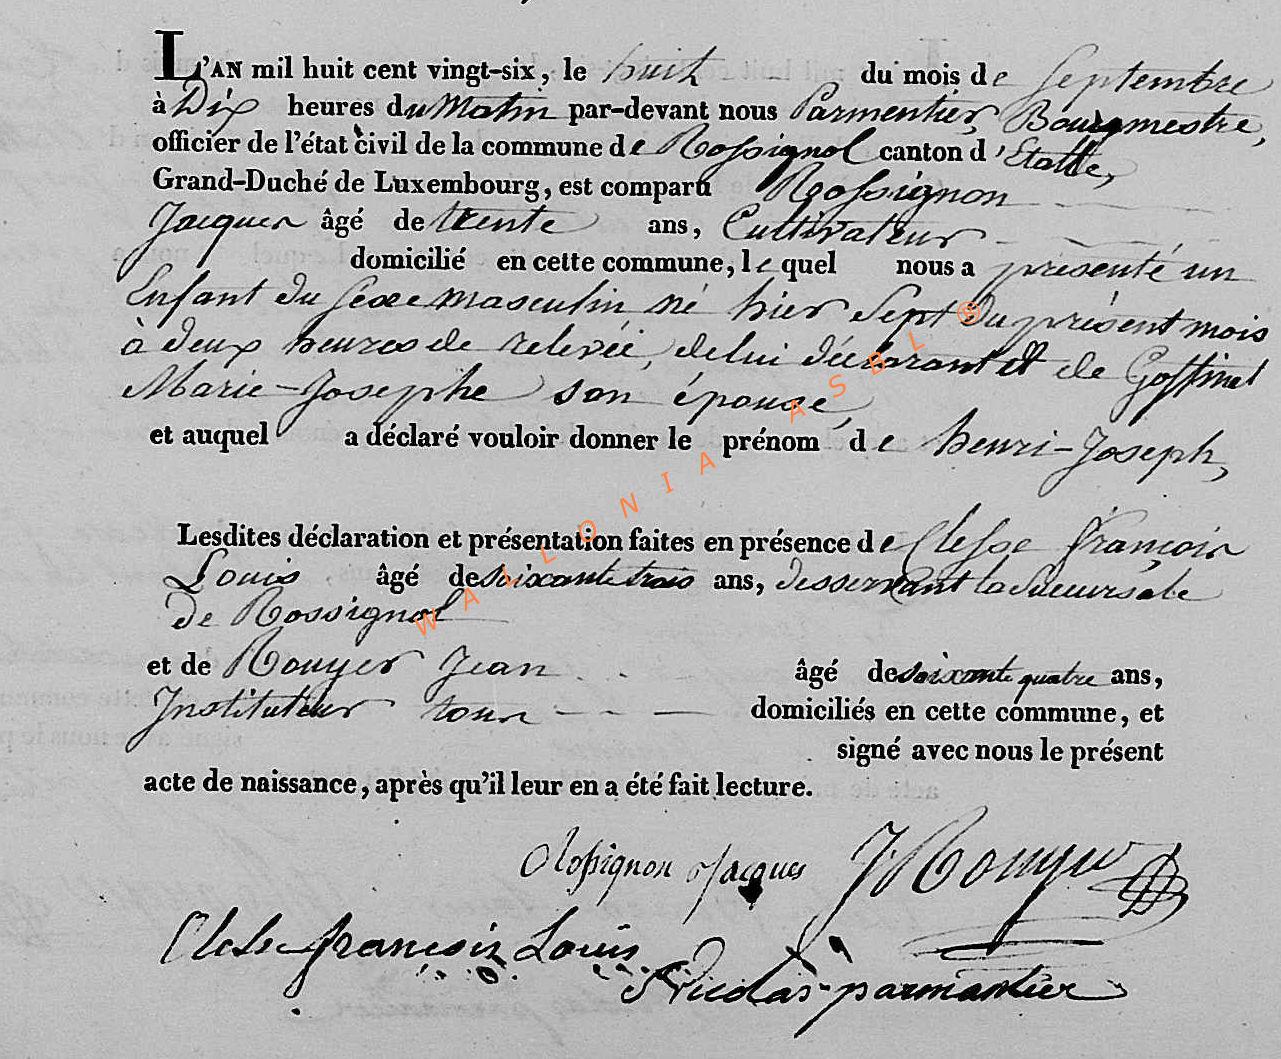 L'AN mil huit cent vingt-six, le huit du mois de Septembre
à Dix heures du Matin par-devant nous Parmentier, Bourgmestre,
officier de l'état civil de la commune de Rossignol canton d'Etalle,
Grand-Duché de Luxembourg, est comparu Rossignon
Jacques âgé de trente ans, Cultivateur
domicilié en cette commune, lequel nous a présenté un
Enfant du Sexe masculin né hier Sept du présent mois
à deux heures de relevée, de lui déclarant et de Goffinet
Marie-Josephe son épouse,
et auquel a déclaré vouloir donner le prénom de henri-Joseph,
Lesdites déclaration et présentation faites en présence de Clesse françois
Louis âgé de soixante trois ans, desservant la Succursale
de Rossignol
et de Rouyer Jean âgé de soixante quatre ans,
Instituteur tous domiciliés en cette commune, et
signé avec nous le présent
acte de naissance, après qu'il leur en a été fait lecture.
Rossignon Jacques J Rouyer
Clesse françois Louis
Nicolas parmentier
WALLONIA ASBL ®